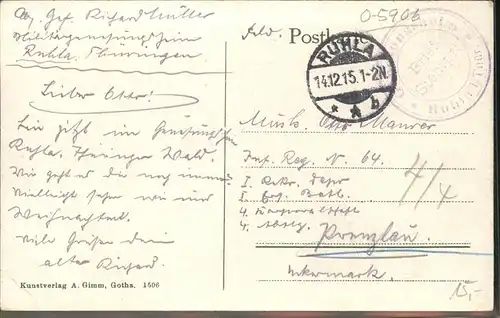 Abs. Gef. Richard Müller
Militärgenesungsheim
Ruhla, Thüringen
Lieber Otto!
Bin jetzt im Genesungsheim
Ruhla, Thüringer Wald.
Wie geht es Dir noch immer
Vielleicht sehen wir uns
Weihnachten.
Viele Grüße Dein
alter Richard.
Kunstverlag A. Gimm, Gotha. 1506
O-5906
Feld. Postkarte
RUHLA
14.12.15.1-2N.
* * b
Musk. Otto Maurer
Inf. Reg. N. 64.
I. Rekr. Depo
I. Batl.
4. Korporalschaft
4. Abtlg.
4/4
Prenzlau.
Uckermark.
15,-